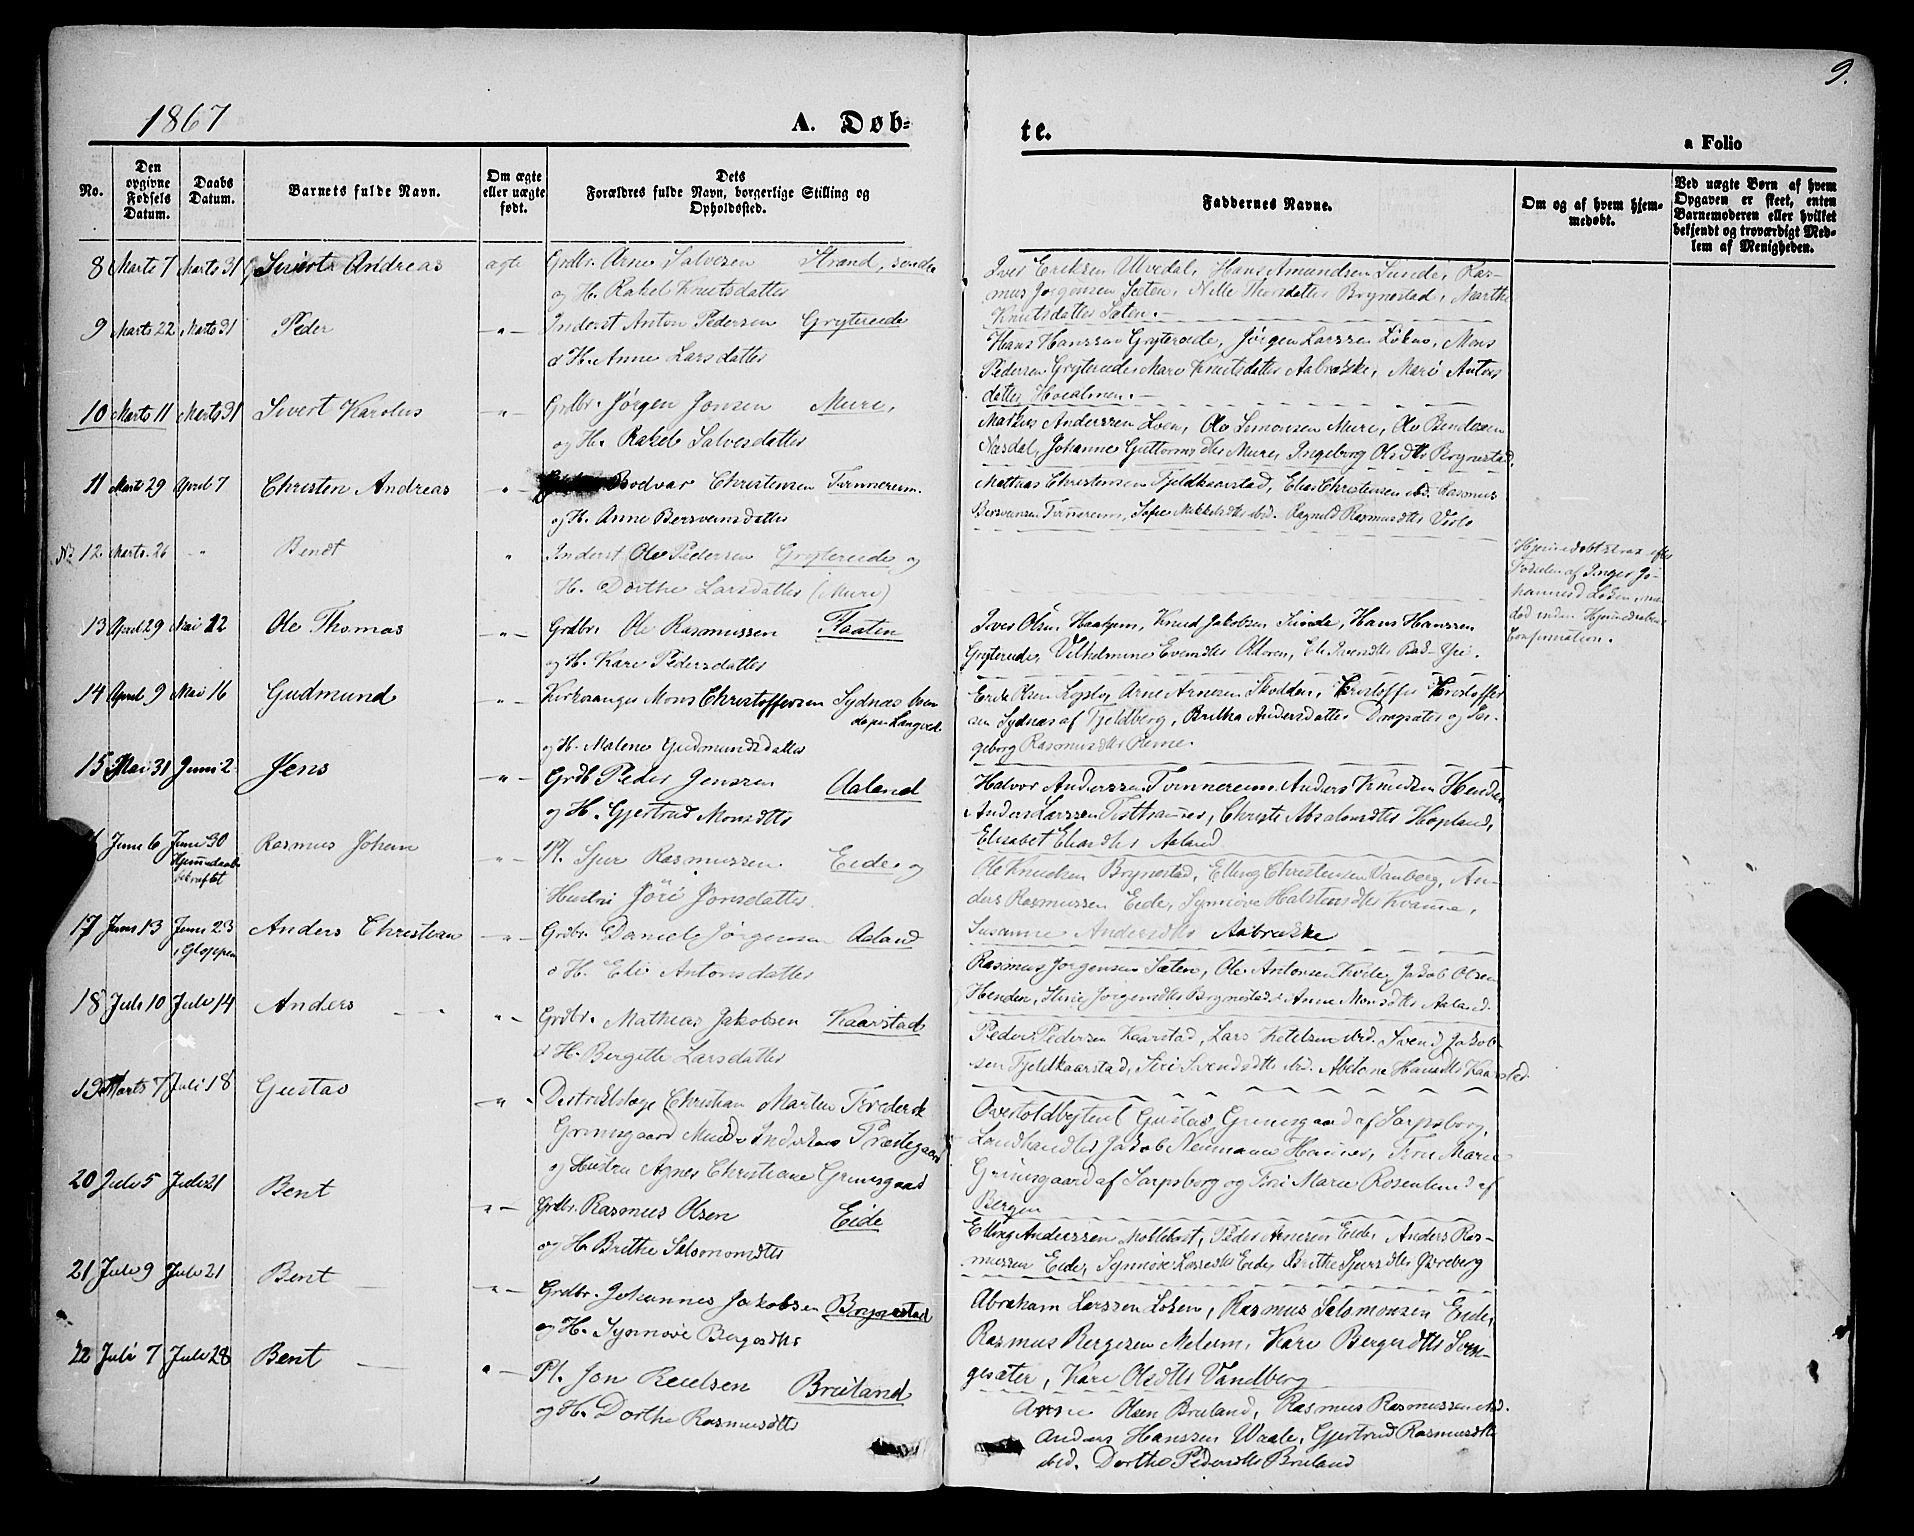 1867
A. Døb-
te.
9.
a Folio
No.
Den opgivne Fødsels Datum.
Daabs Datum.
Barnets fulde Navn.
Om ægte eller uægte født.
Dets Forældres fulde Navn, borgerlige Stilling og Opholdssted.
Faddernes Navne.
Om og af hvem hjemmedøbt.
Ved uægte Børn af hvem Opgaven er skeet, enten Barnemoderen eller hvilket bekjendt og troværdigt Medlem af Menigheden.
8 Marts 7 Marts 31 Sivert Andreas ægte Grdbr. Arne Salvesen Strand, søndre
og H. Rakel Knutsdatter
Iver Eriksen Ulvedal, Hans Amundsen Sunde, Ras-
mus Jørgensen Sæten, Nille Thorsdatter Brynestad, Marthe
Knutsdatter Sæten.
9 Marts 22 Marts 31 Peder " Inderst Anton Pedersen Grytereide
& H. Anne Larsdatter
Hans Hanssen Grytereide, Jørgen Larssen Løken, Mons
Pedersen Gryterede Mari Knutsdatter Aabrække, Mari Antons
datter
10 Marts 11 Marts 31 Sivert Karolus " Grdbr. Jørgen Jonsen Mure,
og H. Rakel Salvesdatter
Markus Anderssen Loen, Ole Simonsen Mure, Ole Bendixsen
Næsdal, Johanne Guttormsdtr Mure, Ingeborg Olsdtr Brynestad,
11 Marts 29 April 7 Christen Andreas " Bodvar Christensen Tvinnereim.
og H. Anne Bersveinsdatter
Mathias Christensen Fjeldkaarstad, Elias Christensen ibd. Rasmus
Bersveinsen Tvinnereim, Sofie Mikkelsdtr ibd. Ragnild Rasmusdtr
No. 12. Marts 26 " Bendt " Inderst Ole Pedersen Gryterede og
H. Dorthe Larsdatter (Mure)
Hjemmedøbt strax efter
Fødselen af Inger Jo-
hannesd Løken, men
død inden Hjemmedaabens
Confirmation.
13 April 29 Mai 12 Ole Thomas " Grdbr. Ole Rasmussen Faaten
og H. Kari Pedersdatter
Iver Olsen Knud Jakobsen Sunde, Hans Hanssen
Gryterede, Vilhelmine Evensdtr Olden, Eli
14 April 9 Mai 16 Gudmund " Kirkesanger Mons Christoffersen Sydnæs
og H. Malene Gudmundsdatter
Erik Olsen Arne Arnesen Skodden, Kristoffer Kristoffer
sen Sydnæs af Fjeldberg, Britha Andersdatter Dragsæter og In-
geborg Rasmusdtr
15 Mai 31 Juni 2 Jens " Grdb Peder Jenssen Aaland
og H. Gjertrud Monsdtr
Halvor Anderssen Tvinnereim, Anders Knudsen Henden
Anders Larssen Christi Absalonsdtr Hopland,
Elisabet Eliasdtr Aaland
Juni 6 Juni 30 Rasmus Johan " Pl. Sjur Rasmussen Eide og
Hjemmedaab
bekræftet
Hustru Jøri Jonsdatter
Ole Knudsen Brynestad, Elling Christensen Vanberg, An-
ders Rasmussen Eide, Synnøve Halstensdtr Kvamme,
Susanne Andersdtr Aabrække
17 Juni 13 Juni 23 Anders Christian " Grdbr. Daniel Jørgensen Aaland
i Gloppen
& H. Eli Antonsdatter
Rasmus Jørgensen Sæten, Ole Antonsen Jakob Olsen
Henden, Stine Jørgensdtr Brynestad & Anne Monsdtr Aaland.
18 Juli 10 Juli 14 Anders " Grdbr. Mathias Jakobsen Kaarstad
& H. Bergitte Larsdatter
Peder Pedersen Kaarstad, Lars Ketelsen ibid. Svend Jakob-
sen Fjeldkaarstad, Siri Svendsdtr ibd. Abelone Hansdtr Kaarstad
19 Marts 7 Juli 18 Gustav " Destriktslæge Christian Martin Frederik
Grimsgaard Præstegaard
og Hustru Agnes Christiane Grimsgaard
Overtoldbetjent Gustav Grimsgaard af Sarpsborg,
Landhandler Jakob Neumann Fru Marie
Grimsgaard af Sarpsborg og Marie Rosenlund af
Bergen
20 Juli 5 Juli 21 Bent " Grdbr. Rasmus Olsen Eide
og H. Brithe Salomonsdtr
Elling Anderssen Peder Arnesen Eide, Anders Ras-
mussen Eide, Synnøve Lassesdtr Eide, Brithe Sjursdtr
21 Juli 9 Juli 21 Bent " Grdbr. Johannes Jakobsen Brynestad
og H. Synnøve Bergesdtr
Abraham Larssen Løken, Rasmus Salomonsen Eide,
Rasmus Bergesen Melem, Kari Bergesdtr
gesæter, Kari Olsdtr Vandberg
22 Juli 7 Juli 28 Bent " Pl. Jon Breiland
og H. Dorthe Rasmusdtr
Olsen Breiland, Rasmus Rasmussen ibd.
Anders Hanssen Waale, Gjertrud Rasmusdtr
ibid. Dorthe Pedersdtr Breiland